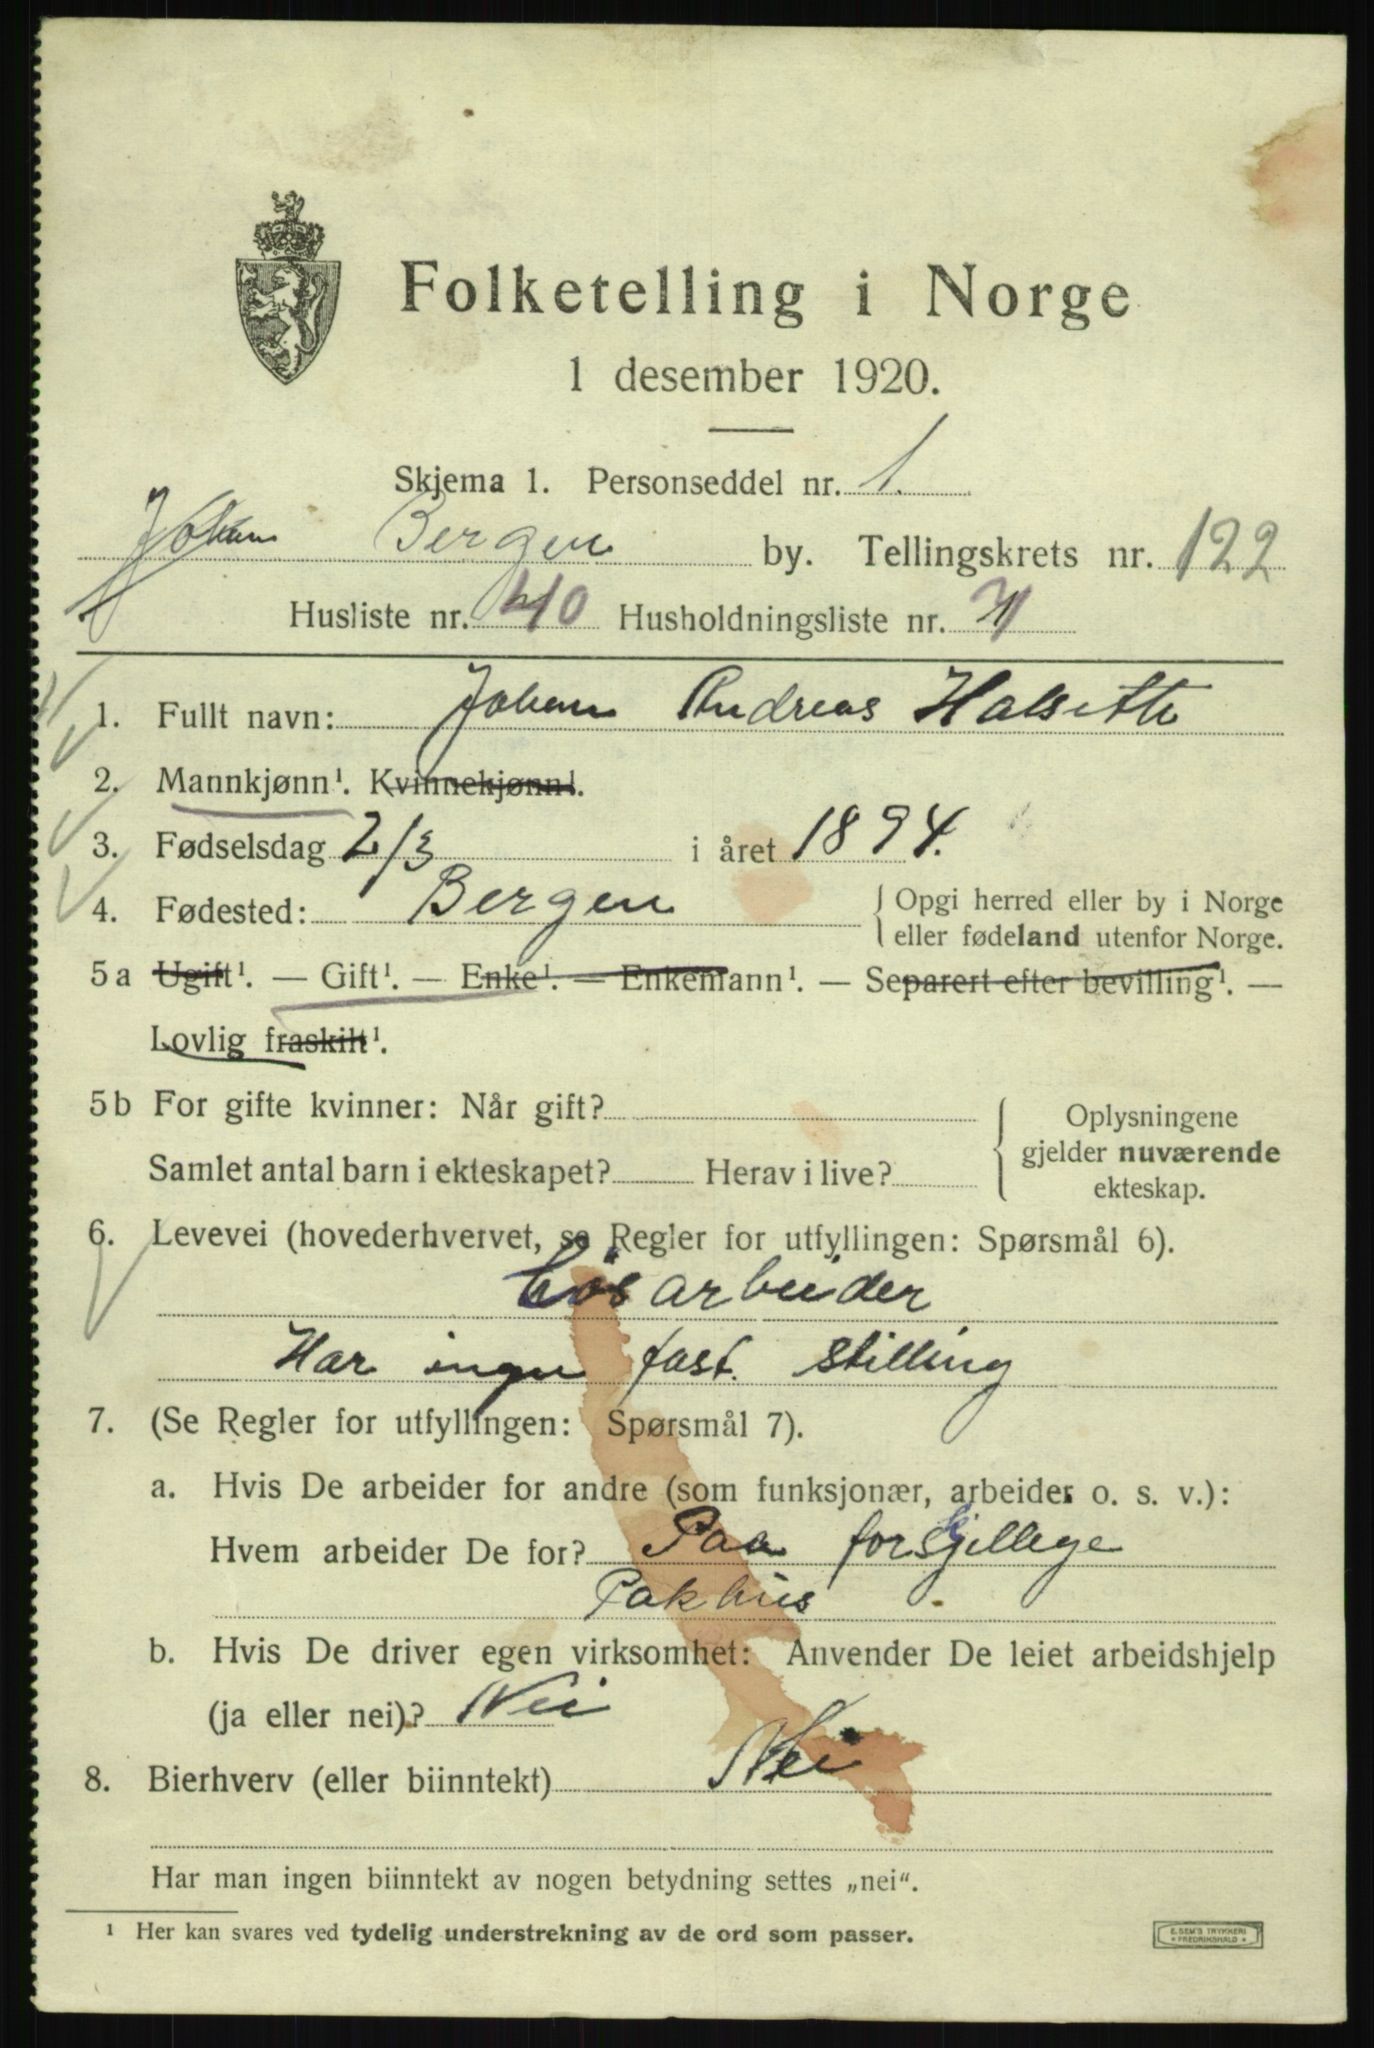 Folketelling i Norge
1 desember 1920.
Skjema 1. Personseddel nr. 1.
Johan Bergen by. Tellingskrets nr. 122
Husliste nr. 40 Husholdningsliste nr.
1. Fullt navn: Johan Andreas Halseth
2. Mannkjønn¹. Kvinnekjønn¹.
3. Fødselsdag 2/3 i året 1894.
4. Fødested: Bergen { Opgi herred eller by i Norge
eller fødeland utenfor Norge.
5a Ugift¹. — Gift¹. — Enke¹. — Enkemann¹. — Separert efter bevilling¹. —
Lovlig fraskilt¹.
5b For gifte kvinner: Når gift?
Samlet antal barn i ekteskapet? Herav i live?
{ Oplysningene
gjelder nuværende
ekteskap.
6. Levevei (hovederhvervet, se Regler for utfyllingen: Spørsmål 6).
Løsarbeider
Har ingen fast. stilling
7. (Se Regler for utfyllingen: Spørsmål 7).
a. Hvis De arbeider for andre (som funksjonær, arbeider o. s. v.):
Hvem arbeider De for? Paa forskjellege
Pakhus
b. Hvis De driver egen virksomhet: Anvender De leiet arbeidshjelp
(ja eller nei)? Nei
8. Bierhverv (eller biinntekt) Nei
Har man ingen biinntekt av nogen betydning settes „nei“.
¹ Her kan svares ved tydelig understrekning av de ord som passer.
E. SEM'S TRYKKERI
FREDRIKSHALD